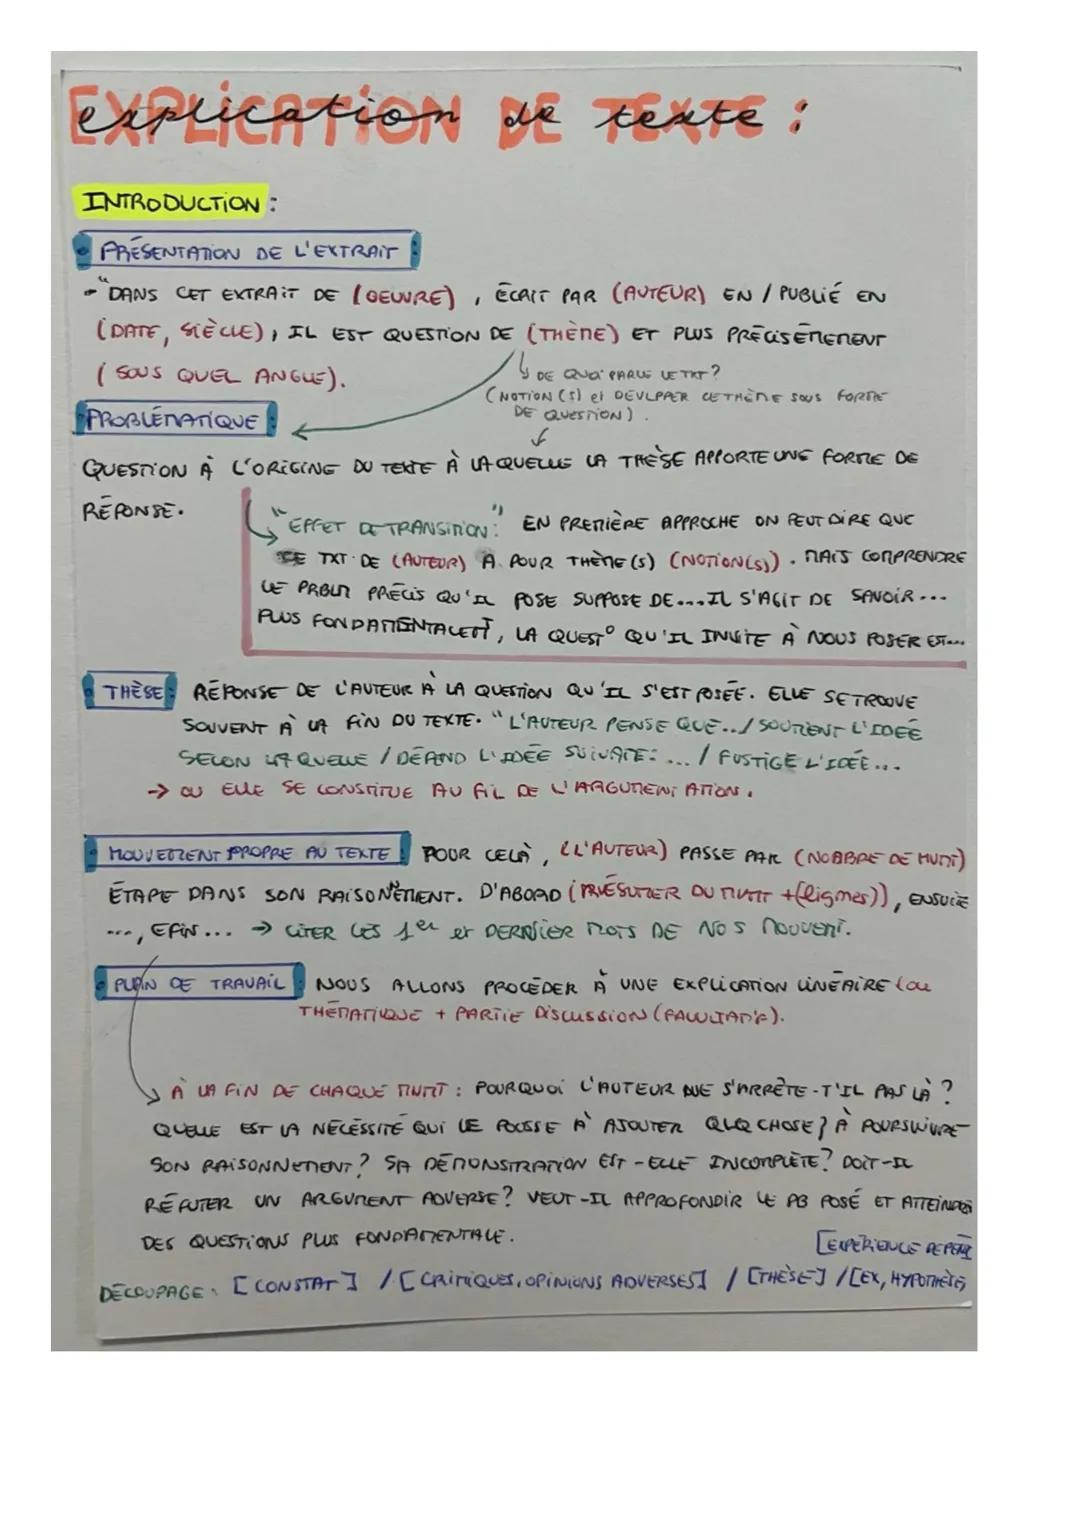 EXPLiCATiON DE TEXTE
explication de texte :
INTRODUCTION :
PRÉSENTATION DE L'EXTRAIT :
"DANS CET EXTRAIT DE (OEUVRE), ÉCRIT PAR (AUTEUR) EN / PUBLIÉ EN
(DATE, SIÈCLE), IL EST QUESTION DE (THÈME) ET PLUS PRÉCISÉMEMENT
(SOUS QUEL ANGLE).
↳ DE QUOI PARLE LE TXT ?
(NOTION (S) et DEVLPPER CE THÈME SOUS FORME
DE QUESTION).
PROBLÉMATIQUE :
QUESTION À L'ORIGINE DU TEXTE À LAQUELLE LA THÈSE APPORTE UNE FORME DE
RÉPONSE.
"EFFET DE TRANSITION": EN PREMIÈRE APPROCHE ON PEUT DIRE QUE
CE TXT DE (AUTEUR) A POUR THÈME(S) (NOTION(S)). MAIS COMPRENDRE
LE PRBLM PRÉCIS QU'IL POSE SUPPOSE DE... IL S'AGIT DE SAVOIR...
PLUS FONDAMENTALEMT, LA QUEST° QU'IL INVITE À NOUS POSER EST...
THÈSE : RÉPONSE DE L'AUTEUR À LA QUESTION QU'IL S'EST POSÉE. ELLE SE TROUVE
SOUVENT À LA FIN DU TEXTE. "L'AUTEUR PENSE QUE.../ SOUTIENT L'IDÉE
SELON LAQUELLE / DÉFEND L'IDÉE SUIVATE: ... / FUSTIGE L'IDÉE...
→ OU ELLE SE CONSTITUE AU FIL DE L'ARGUMENTATION.
MOUVEMENT PROPRE AU TEXTE : POUR CELÀ, (L'AUTEUR) PASSE PAR (NOMBRE DE MVMT)
ÉTAPE DANS SON RAISONNEMENT. D'ABORD (RÉSUMER DU MVMT +(lignes)), ENSUITE
..., EFIN... → CITER LES 1er et DERNIER MOTS DE NOS MOUVEMT.
PLAN DE TRAVAIL : NOUS ALLONS PROCÉDER À UNE EXPLICATION LINÉAIRE (ou
THÉMATIQUE + PARTIE DISCUSSION (FACULTATIF).
↳ À LA FIN DE CHAQUE MVMT : POURQUOI L'AUTEUR NE S'ARRÊTE-T'IL PAS LÀ ?
QUELLE EST LA NÉCÉSSITÉ QUI LE POUSSE À AJOUTER QLQ CHOSE ? À POURSUIVRE
SON RAISONNEMENT ? SA DÉMONSTRATION EST-ELLE INCOMPLÈTE ? DOIT-IL
RÉFUTER UN ARGUMENT ADVERSE ? VEUT-IL APPROFONDIR LE PB POSÉ ET ATTEINDRE
DES QUESTIONS PLUS FONDAMENTALE.
[EXPÉRIENCE
DÉCOUPAGE : [CONSTAT] / [CRITIQUES, OPINIONS ADVERSES] / [THÈSE] / [EX, HYPOTHÈSE,